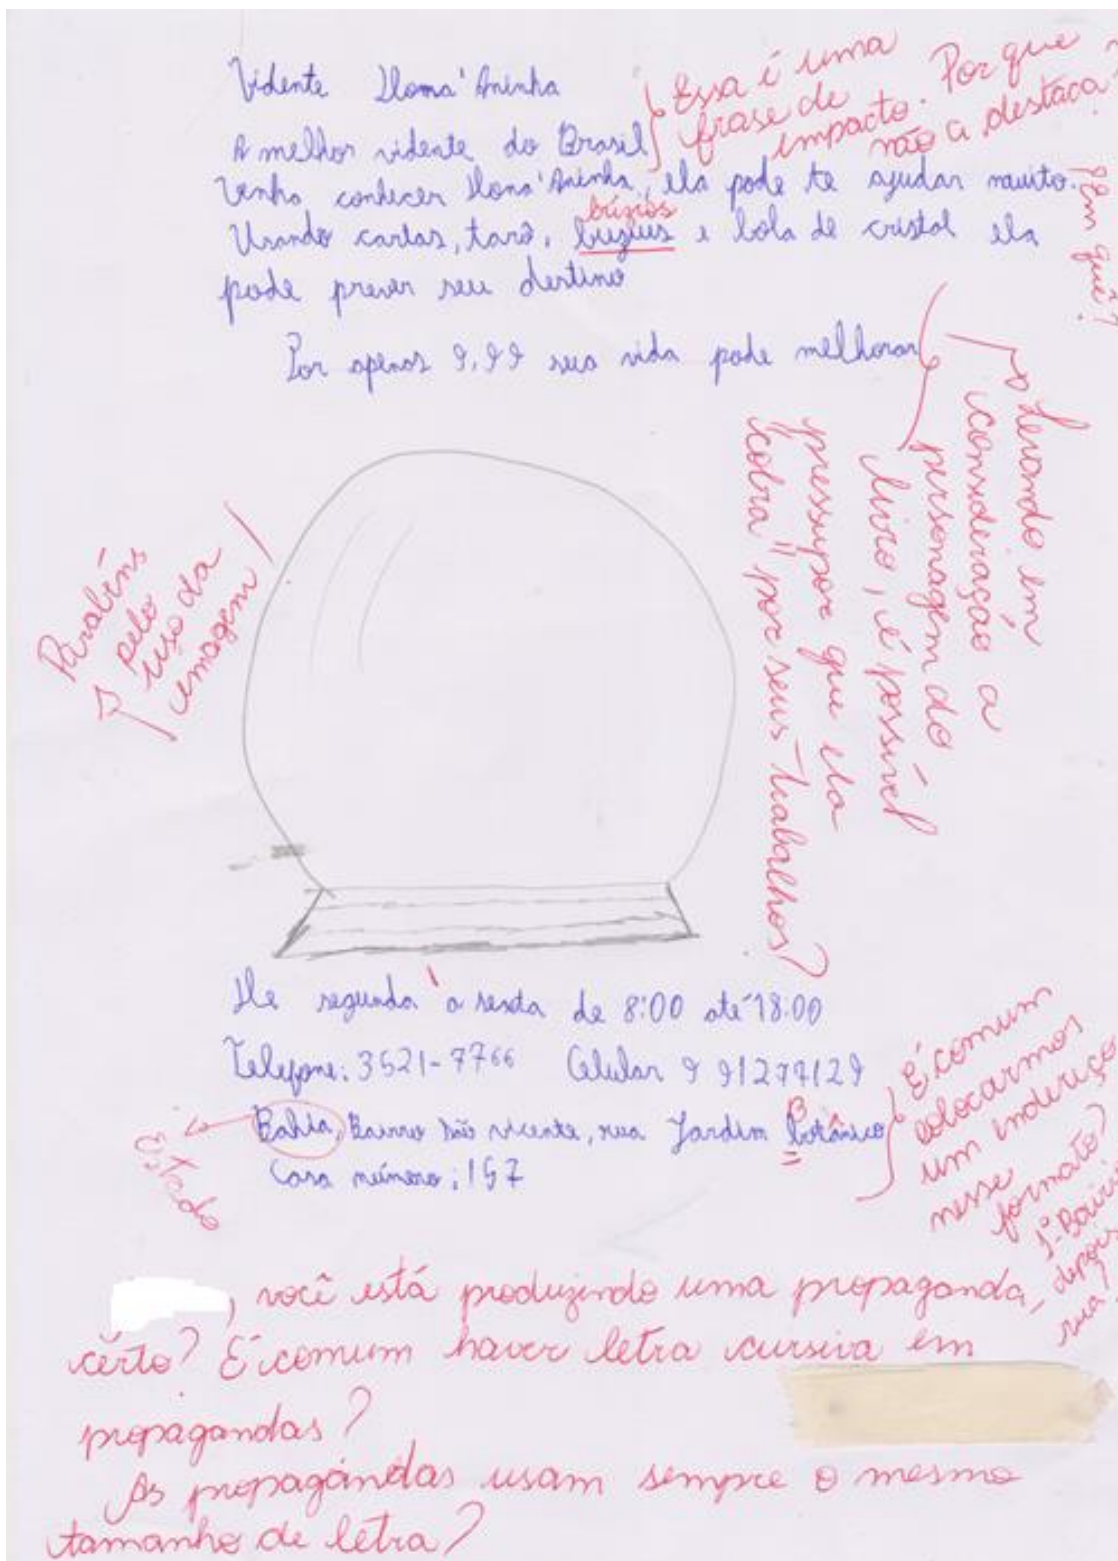 Vidente Dona' Aninha
A melhor vidente do Brasil
Essa é uma
frase de
impacto. Por que
não a destaca?
Venha conhecer Dona' Aninha, ela pode te ajudar muito.
Em quê?
búzios
Usando cartas, tarô, buzius e bola de cristal ela
pode prever seu destino
Por apenas 9,99 sua vida pode melhorar
Levando em
consideração a
personagem do
livro, é possível
pressupor que ela
"cobra" por seus trabalhos?
Parabéns
pelo
uso da
imagem
De segunda a sexta de 8:00 até 18:00
Telefone: 3521-7766 Celular 9 91277129
Bahia, Bairro São vicente, rua Jardim botânico
B
Casa número: 157
Estado
É comum
colocarmos
um endereço
nesse
formato?
1º- Bairro
depois
rua?
, você está produzindo uma propaganda,
certo? É comum haver letra cursiva em
propagandas?
As propagandas usam sempre o mesmo
tamanho de letra?